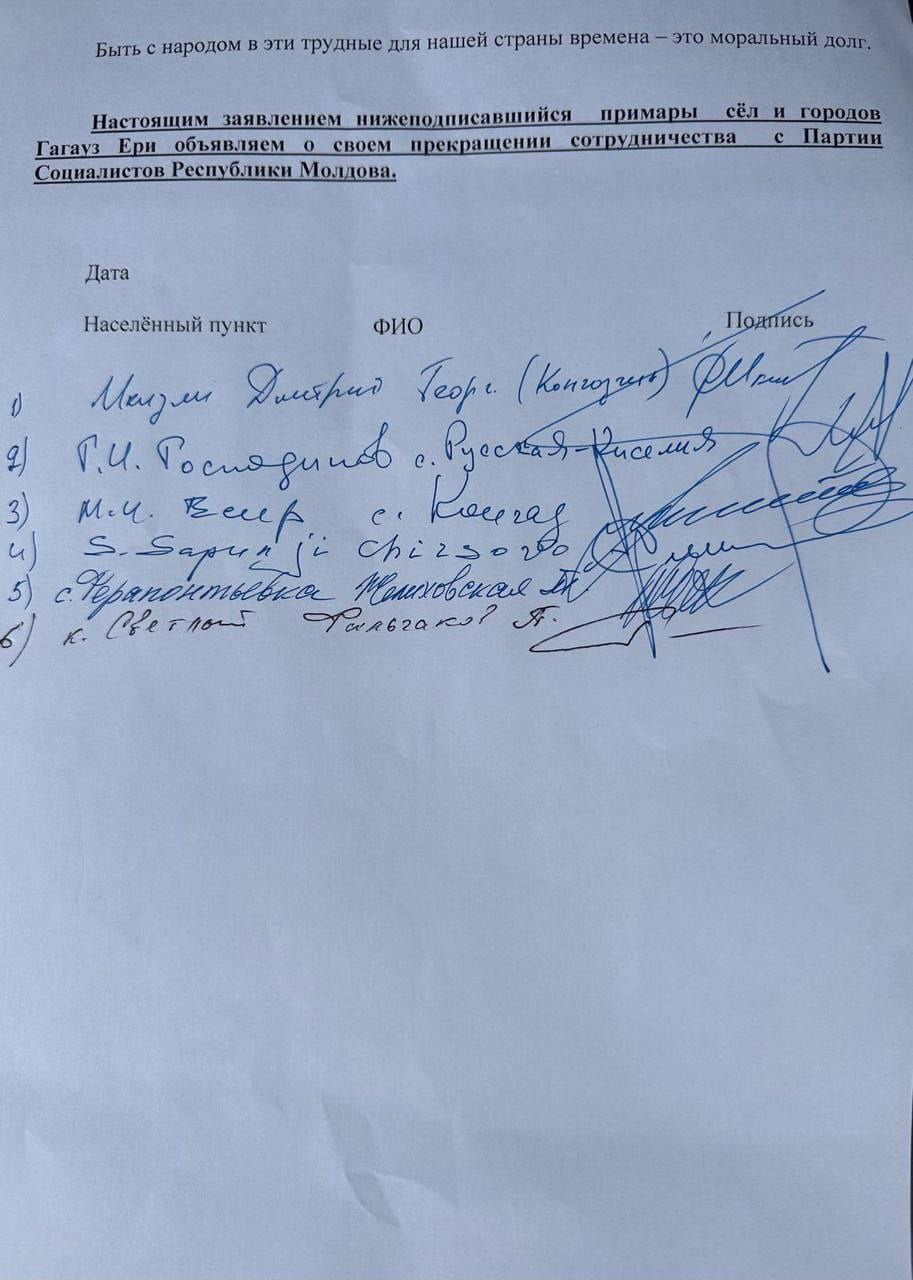 Быть с народом в эти трудные для нашей страны времена – это моральный долг.
Настоящим заявлением нижеподписавшийся примары сёл и городов
Гагауз Ери объявляем о своем прекращении сотрудничества с Партии
Социалистов Республики Молдова.
Дата
Населённый пункт ФИО Подпись
1) Дмитрий Георг.
2) Г.И. Господинов с. Русская-Киселия
3) М.И. с. Конгаз
4) S. Sapunji Chirsovo
5) с. Ферапонтьевка Желиховская
6) к. Светлый П.